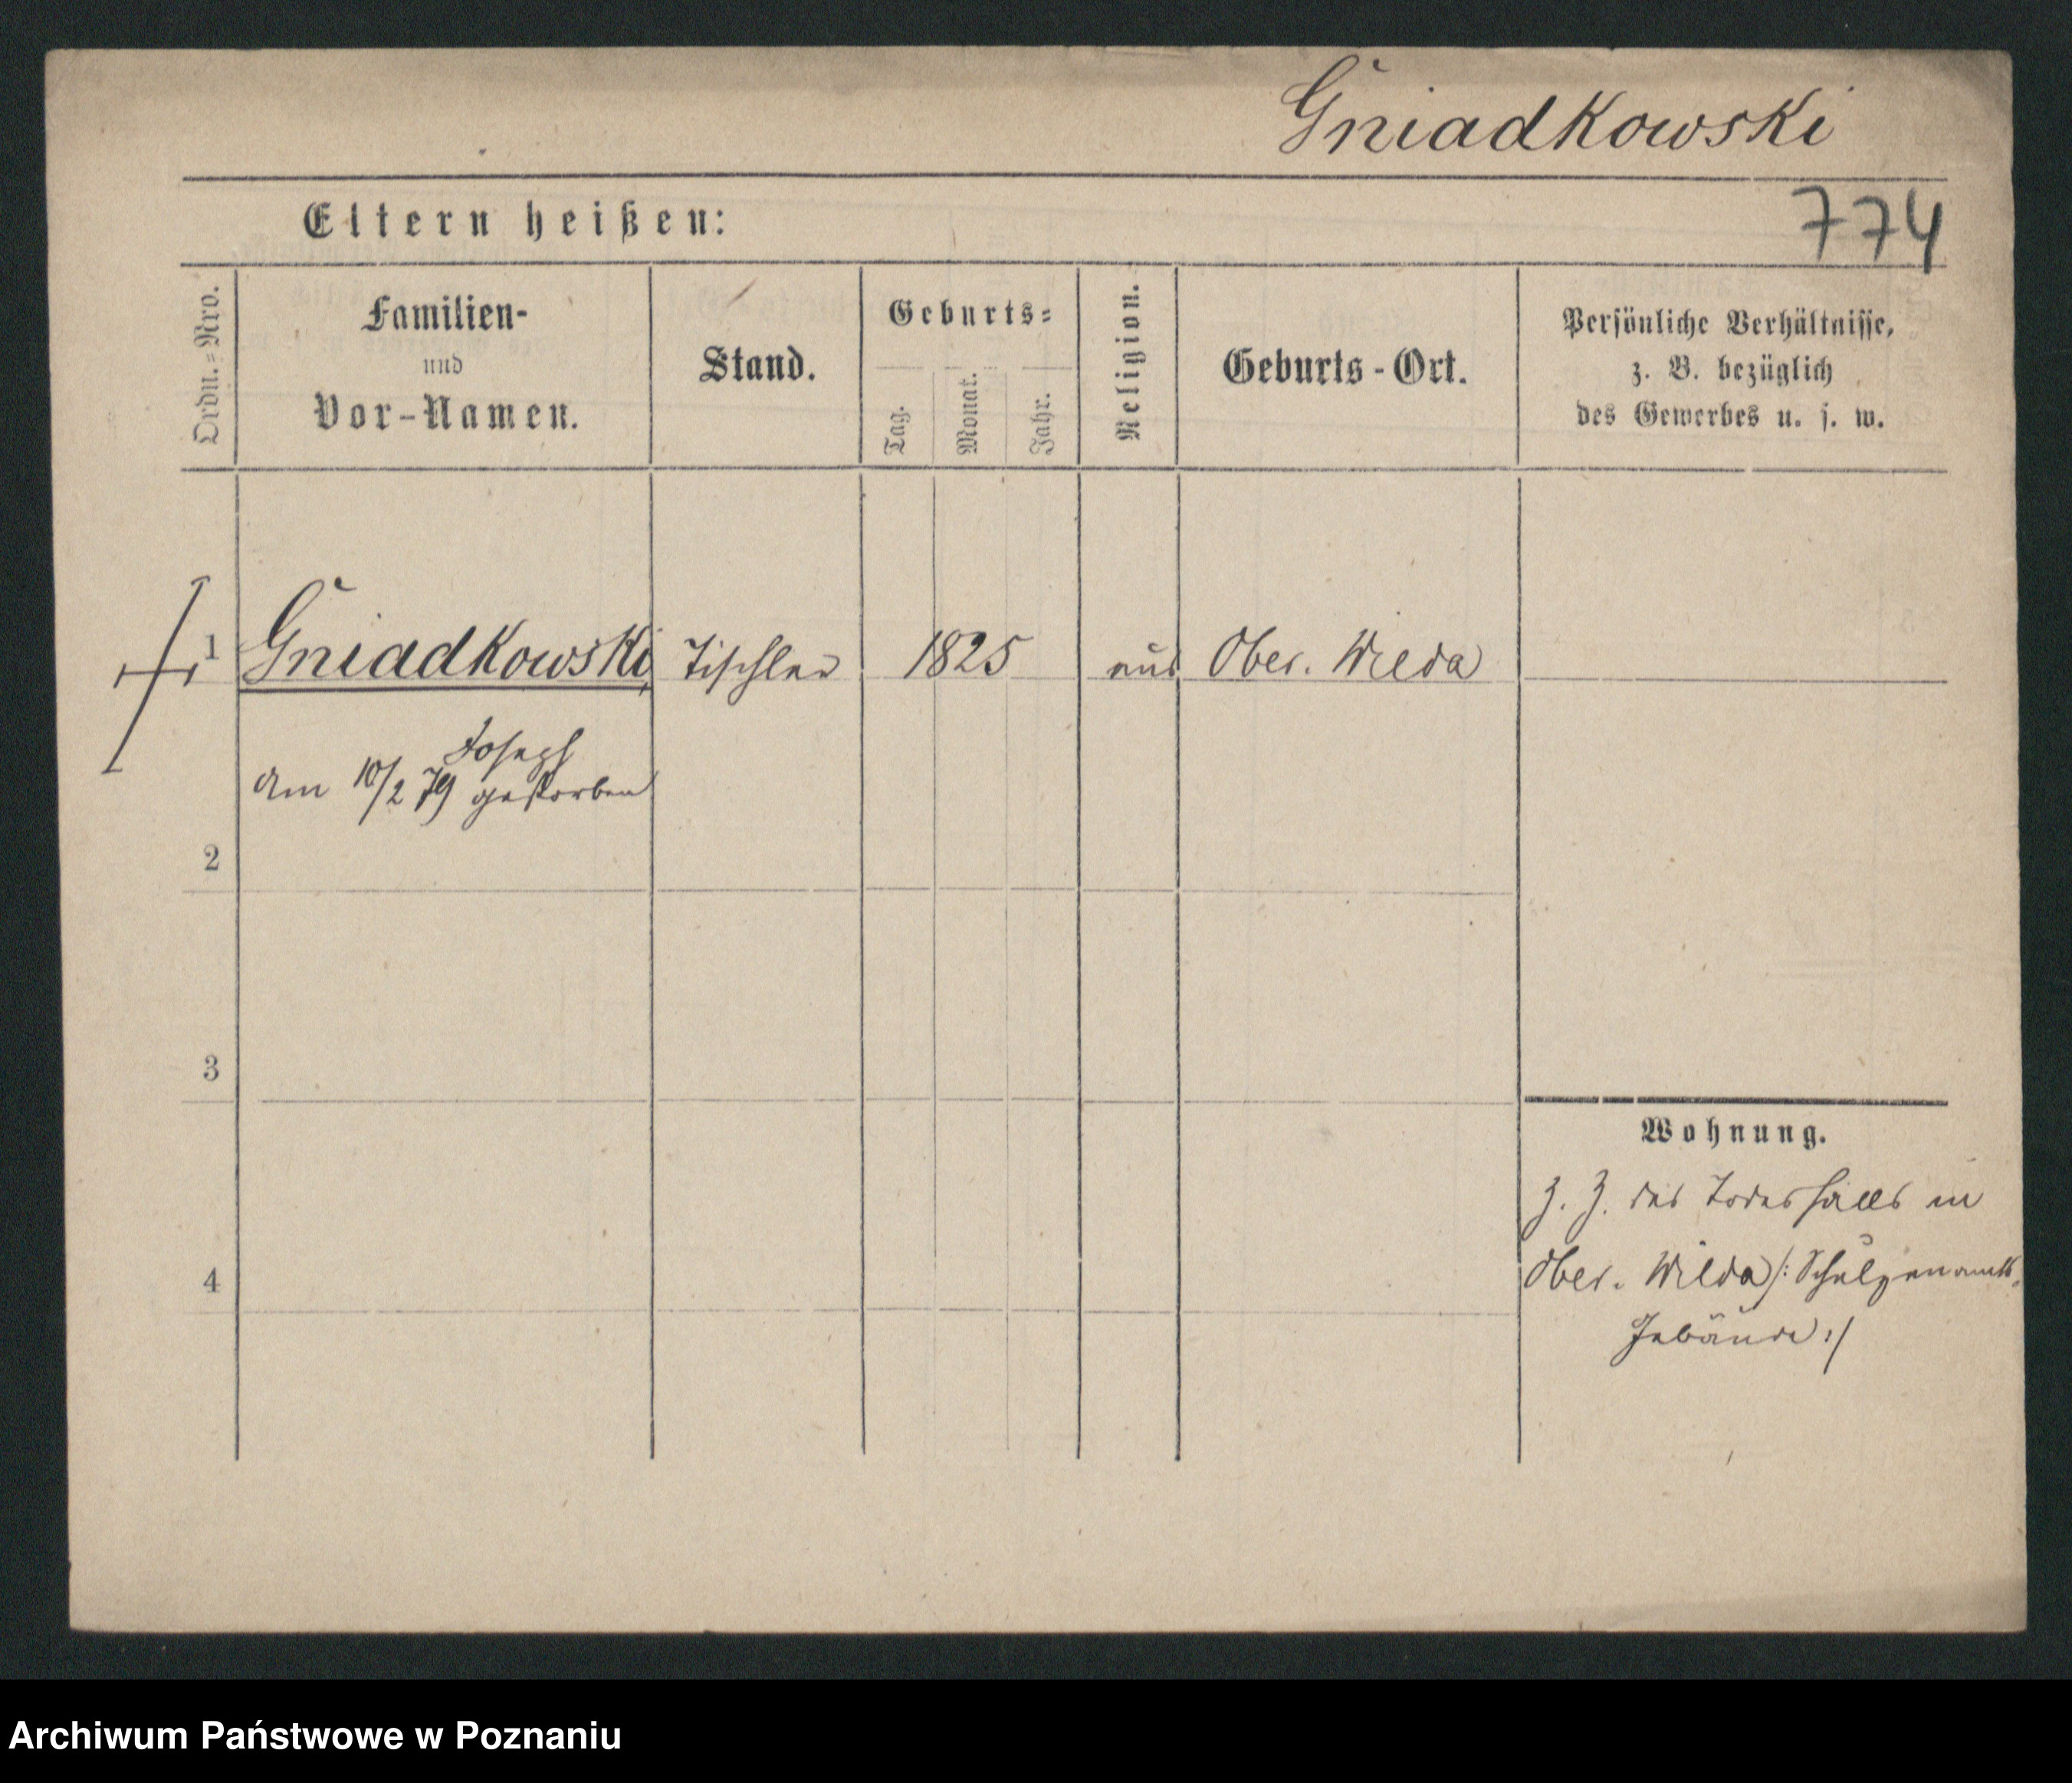 Gniadkowski
Eltern heißen:
774
Ordn.=Nro.
Familien-
und
Vor-Namen.
Stand.
Geburts=
Tag.
Monat.
Jahr.
Religion.
Geburts-Ort.
Persönliche Verhältnisse,
z. B. bezüglich
des Gewerbes u. s. w.
1 Gniadkowski, Tischler 1825 aus Ober. Wilda
Joseph
am 10/2 79 gestorben
2
3
Wohnung.
z. Z. des Todesfalls in
Ober. Wilda /: Schulzenamts-
4
Gebäude :/
Archiwum Państwowe w Poznaniu